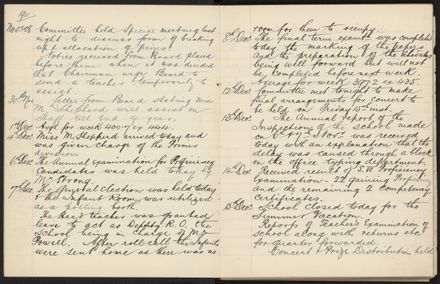 Nov 28 Committee held Special meeting last
night to discuss form of breaking
up & allocation of prizes.
Notice received from Board placed
before them when it was decided
that Chairman urge Board to
send a teacher temporarily to
assist.
30 Nov Letter from Board stating Miss
M. School will assist on
Staff till end of year.
1st Dec Avge for week 400.7 ex 444.
4th Dec Miss M. Shepherd arrived today and
was given charge of the Primer
division.
6th Dec The Annual Examination for Proficiency
Candidates was held today by
Mr Strong.
7th Dec The General Election was held today
& the Infant Room was utilised
as a polling booth.
The Head teacher was granted
leave to act as Deputy R.O. the
School being in charge of Mr
Powell. After roll call the Infants
were sent home as there was no
room for them to occupy.
8th Dec The final term exams was completed
today the marking of the papers
and the preparation of the schedules
being well forward but will not
be completed before next week.
Average for week 397.2 ex 435.
12th Dec Committee met tonight to make
final arrangements for Concert to
be held on Friday 15th inst.
13th Dec The Annual report of the
Inspections of the school made
on 6 & 7 Nov was received
today with an explanation that the
delay was caused through a block
in the office typing department.
14th Dec Received result of S. VI Proficiency
Examination - 22 gaining Proficy
and the remaining 2 Competency
Certificates.
15th Dec School closed today for the
Summer Vacation.
Reports of Teacher's Examination of
School along with returns etc
for quarter forwarded.
Concert & Prize Distribution held